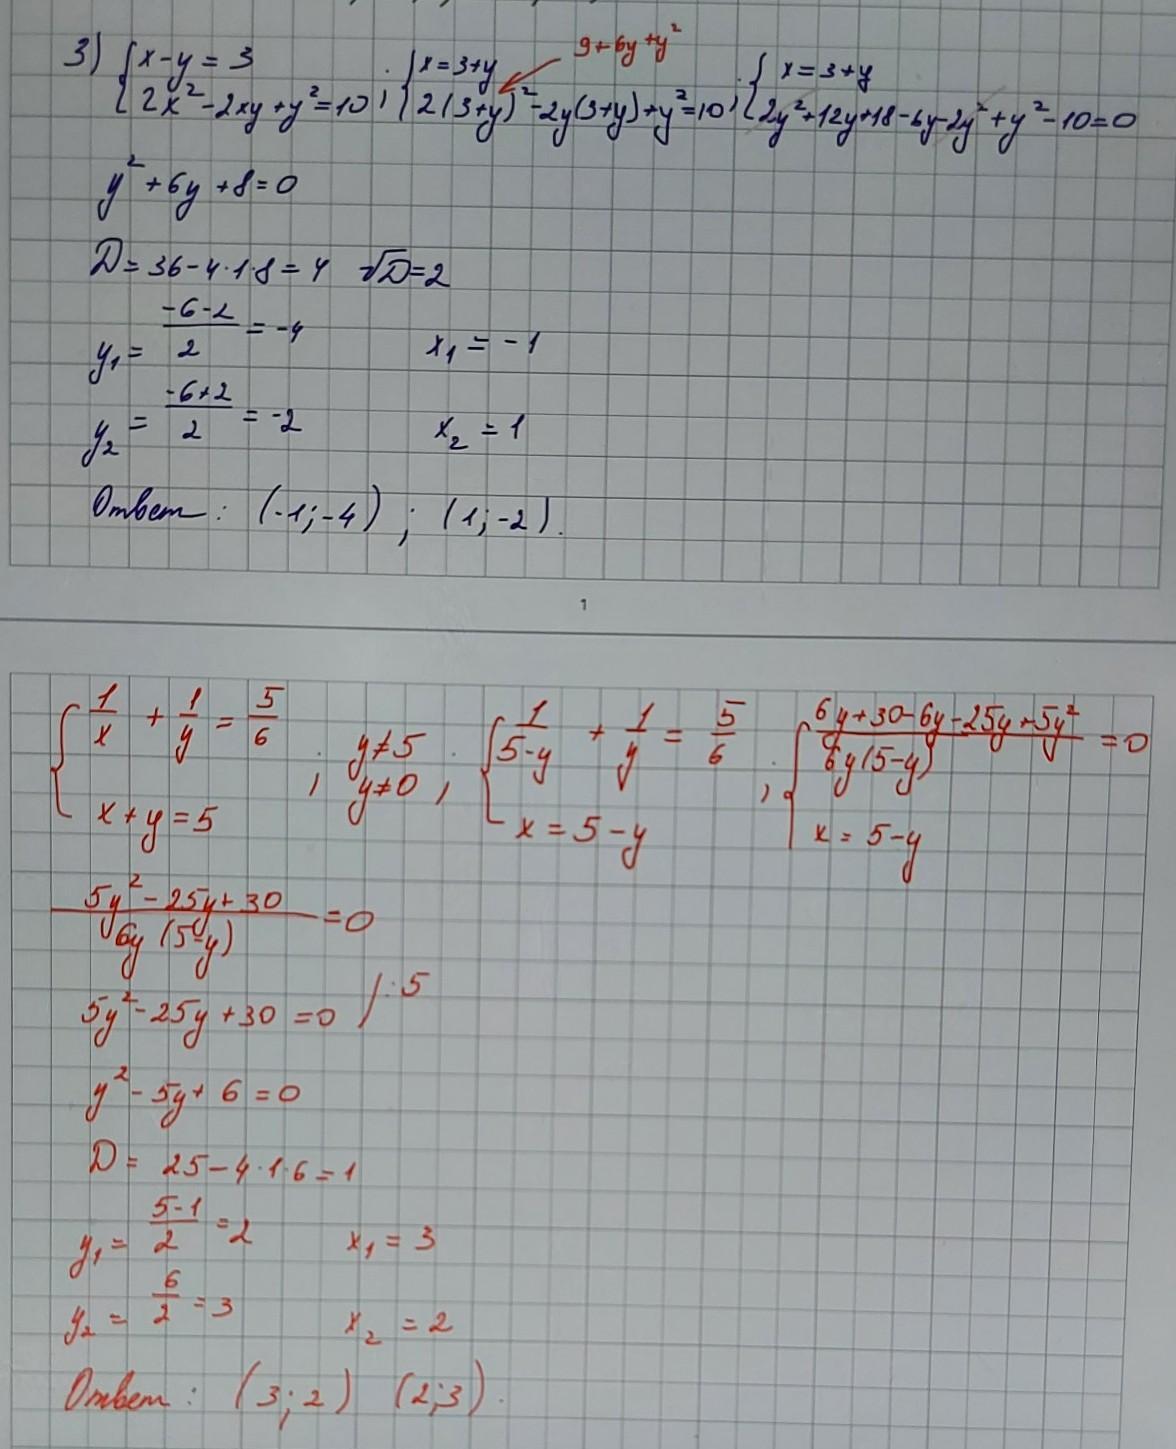 9+6y+y²
3) { x-y=3 ; { x=3+y ; { x=3+y
2x²-2xy+y²=10 2(3+y)²-2y(3+y)+y²=10 2y²+12y+18-6y-2y²+y²-10=0
y²+6y+8=0
D=36-4·1·8=4 √D=2
y₁= (-6-2)/2 =-4 x₁=-1
y₂= (-6+2)/2 =-2 x₂=1
Ответ: (-1;-4) ; (1;-2).
1
{ 1/x + 1/y = 5/6 ; y≠5 ; { 1/(5-y) + 1/y = 5/6 ; { (6y+30-6y-25y+5y²)/(6y(5-y)) =0
x+y=5 y≠0 x=5-y x=5-y
(5y²-25y+30)/(6y(5-y)) =0
5y²-25y+30=0 /:5
y²-5y+6=0
D= 25-4·1·6=1
y₁= (5-1)/2 =2 x₁=3
y₂= 6/2 =3 x₂=2
Ответ: (3;2) (2;3).